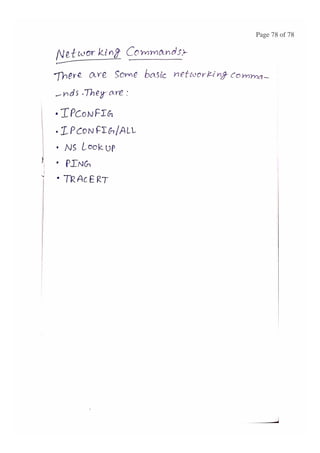 Page 78 of 78
Networking Commands:-
There are some basic networking comma-
-nds. They are:
• IPCONFIG
• IPCONFIG/ALL
• NS Look UP
• PING
• TRACERT